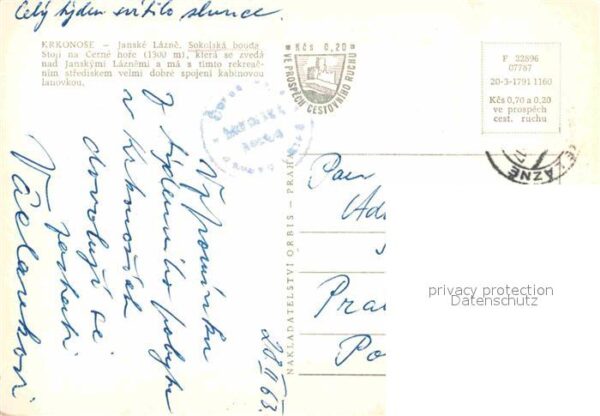 Celý týden svítilo slunce.
KRKONOŠE — Janské Lázně. Sokolská bouda
Stojí na Černé hoře (1300 m), která se zvedá
nad Janskými Lázněmi a má s tímto rekreač-
ním střediskem velmi dobré spojení kabinovou
lanovkou.
Kčs 0,20
VE PROSPĚCH CESTOVNÍHO RUCHU
F 22896
07767
20-3-1791 1160
Kčs 0,70 a 0,20
ve prospěch
cest. ruchu
LÁZNĚ
Vzpomínku
z týdenního pobytu
v Krkonoších
dovolují si
zaslati
Václavkovi
28 II 63.
NAKLADATELSTVÍ ORBIS — PRAHA
Pan
Pra
Po
privacy protection
Datenschutz